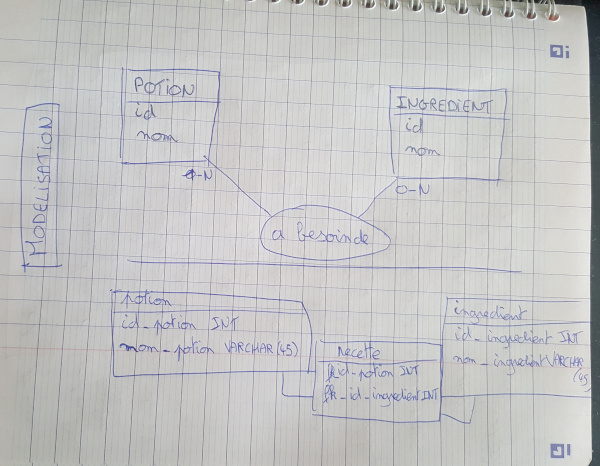 MODELISATION
POTION
id
nom
INGREDIENT
id
nom
0-N
a besoin de
potion
id_potion INT
nom_potion VARCHAR(45)
recette
id_potion INT
fk_id_ingredient INT
ingredient
id_ingredient INT
nom_ingredient VARCHAR
(45)